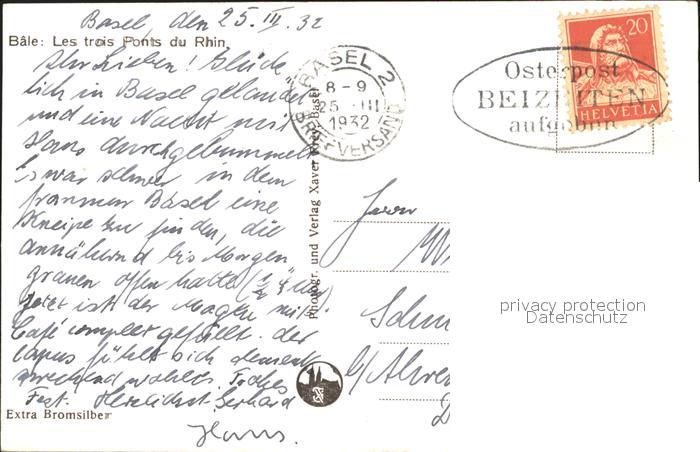 Basel, den 25. III. 32
Bâle: Les trois Ponts du Rhin
Ihr Lieben! Glück
lich in Basel gelandet
und eine Nacht mit
Hans durchgebummelt
Es war schwer in dem
frommen Basel eine
Kneipe zu finden, die
annähernd bis Morgen
grauen offen hatte (½ 4 Uhr)
Jetzt ist der Magen mit
Café complet gefüllt. der
Corpus fühlt sich dement
sprechend wohler. Frohes
Fest. Herzlichst Gerhard
Hans.
Extra Bromsilber
Photogr. und Verlag Xaver Frey, Basel
BASEL 2
8-9
25 III
1932
BRIEFVERSAND
Osterpost
BEIZEITEN
aufgeben
20
HELVETIA
Herrn
W
Schm
b/ Ahren
D
privacy protection
Datenschutz